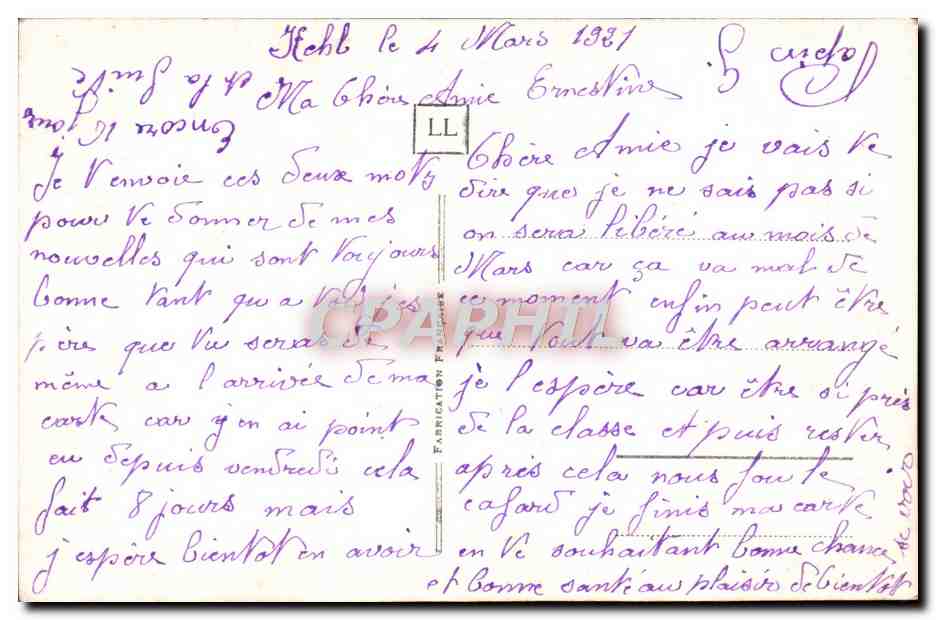 Kehl le 4 Mars 1921
Ma Chère Amie Ernestine
Je t'envoie ces deux mots
pour te donner de mes
nouvelles qui sont toujours
bonne tant qu a toi j'es
père que tu seras de
même a l'arrivée de ma
carte car j'en ai point
eu depuis vendredi cela
fait 8 jours mais
j espère bientot en avoir
LL
FABRICATION FRANÇAISE
Chère Amie je vais te
dire que je ne sais pas si
on sera libéré au mois de
Mars car ça va mal de
ce moment enfin peut être
que tout va être arrangé
je l'espère car être si près
de la classe et puis rester
après cela nous fou le
cafard je finis ma carte
en te souhaitant bonne chance
et bonne santé au plaisir de bientot
te voir
Encore 16 jour
et la fuite
CPAPHIL